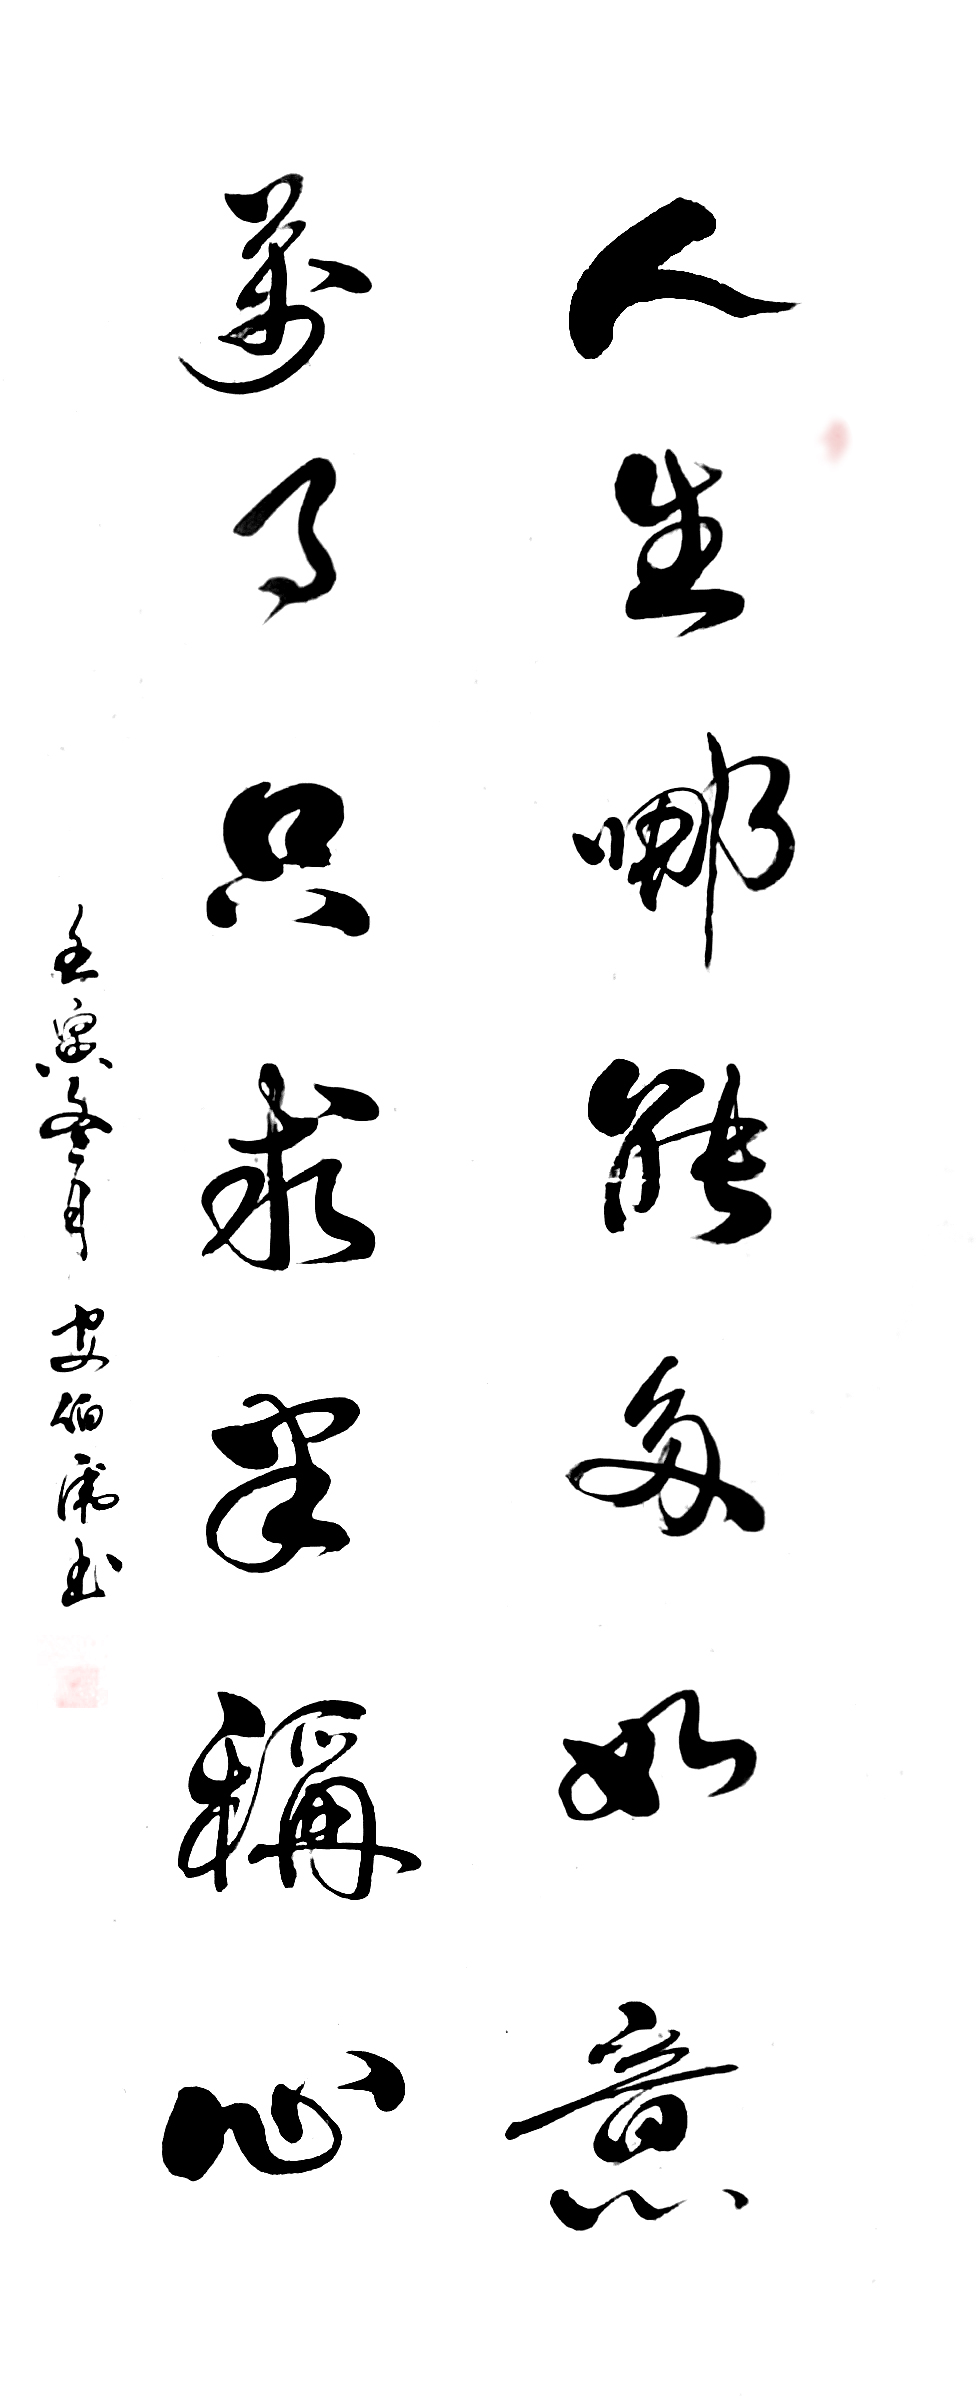 人生哪能多如意
萬事只求半稱心
壬寅冬月 安伯虎书